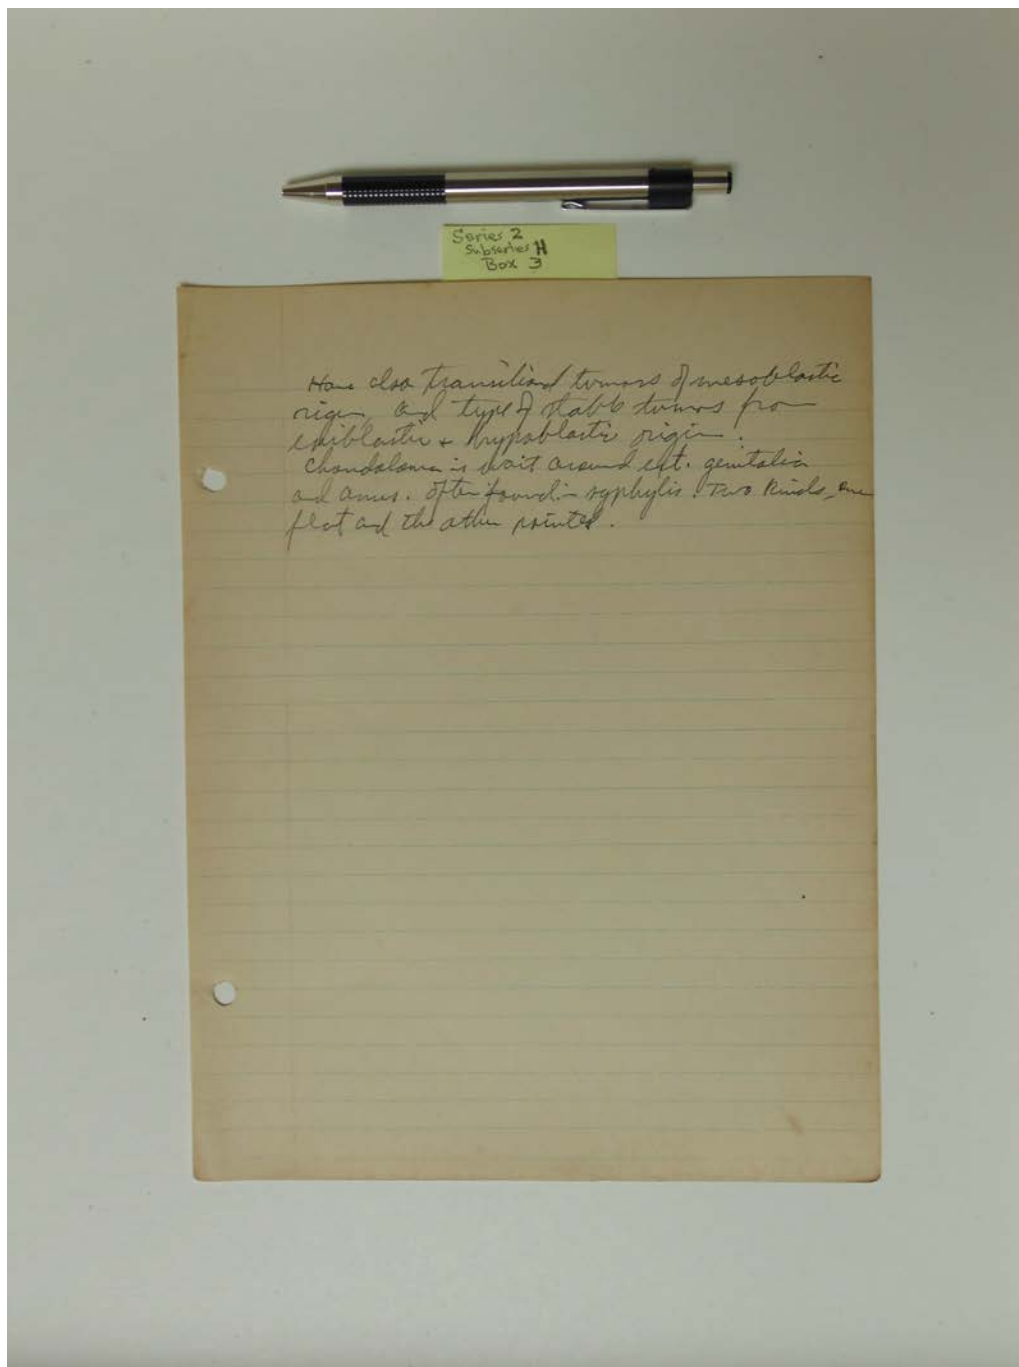 Series 2
Subseries H
Box 3
Have also transitional tumors of mesoblastic
origin, and type of stable tumors from
epiblastic + hypoblastic origin.
is wart around ext. genitalia
and anus. Often found in syphylis. Two kinds, one
flat and the other pointed.